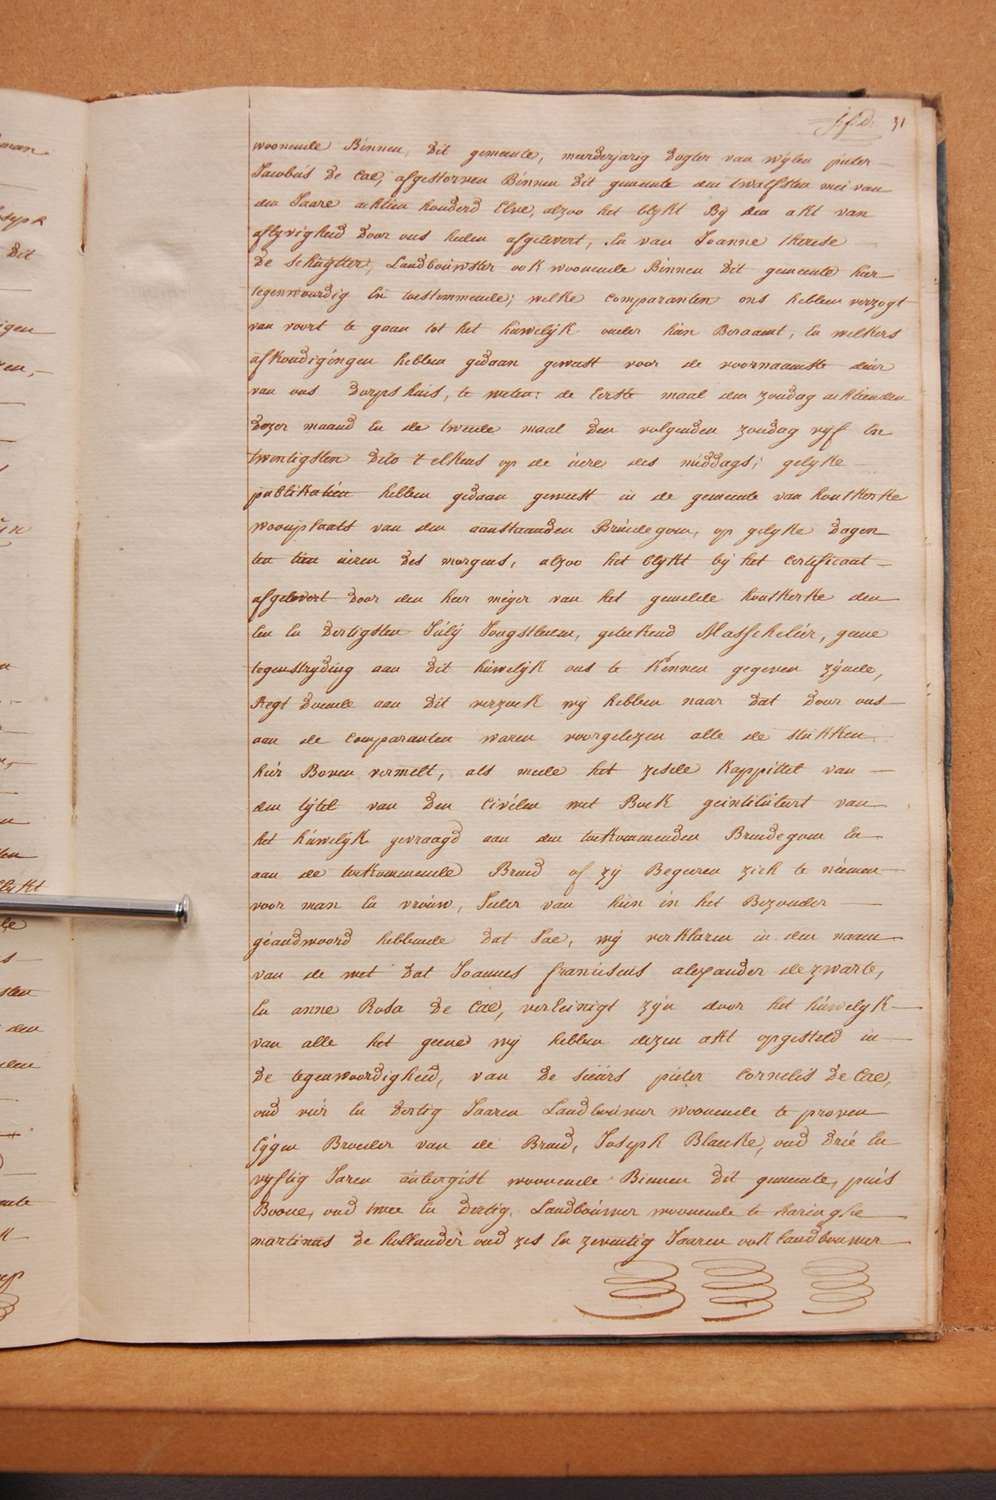 31
woonende Binnen dit gemeente, meerderjarig dogter van wijlen pieter
Jacobus De Cae, afgestorven Binnen dit gemeente den twalfsten mei van
den Jaare achtien honderd Elve, alzoo het blykt By den akt van
aflyvigheid door ons heden afgelevert, En van Joanne therese
De schuytter, Landbouwster ook woonende Binnen Dit gemeente hier
tegenwoordig En toestemmende; welke comparanten ons hebben verzogt
van voort te gaan tot het huwelijk onder hun Beraamt, En welkers
afkondigingen hebben gedaan geweest voor de voornaamste deur
van ons Dorps huis, te weten: de Eerste maal den zondag achtienden
Dezer maand En de tweede maal Den volgenden zondag vijf En
twentigsten dito t'elkens op de uere des middags; gelyke
publikatien hebben gedaan geweest in de gemeente van houtkerke
woonplaats van den aanstaanden Bruidegom, op gelyke Dagen
ten tien uren des morgens, alzoo het blykt bij het certificaat
afgelevert door den heer meijer van het gemelde houtkerke den
Een En Dertigsten July Jongstleden, geteekend Masschelier, geene
tegenstryding aan dit huwelijk ons te Kennen gegeven zynde,
Regt Doende aan Dit verzoek wij hebben naar Dat Door ons
aan de Comparanten waren voorgelezen alle de stukken
hier Boven vermelt, als mede het zesde kappittel van
den tytel van Den Civilen wet Boek geintituleert van
het huwelijk gevraagd aan den toekommenden Bruidegom En
aan de toekommende Bruid of zij Begeeren zich te neemen
voor man En vrouw, Ieder van hun in het Bezonder
geandwoord hebbende Dat Jae, wij verklaren in den naam
van de wet Dat Joannes franciscus alexander dezwarte,
En anne Rosa De Cae, vereenigt zyn door het huwelyk
van alle het geene wij hebben dezen akt opgesteld in
De tegenwoordigheid, van De sieurs pieter cornelis De Cae,
oud vier En Dertig Jaaren Landbouwer woonende te proven
Eygen Broeder van de Bruid, Joseph Blanke, oud Drie En
vyftig Jaren aubergist woonende Binnen Dit gemeente, puis
Boone, oud twee En Dertig Landbouwer woonende te haringhe
martinus De hollander oud zes En zeventig Jaaren ook landbouwer